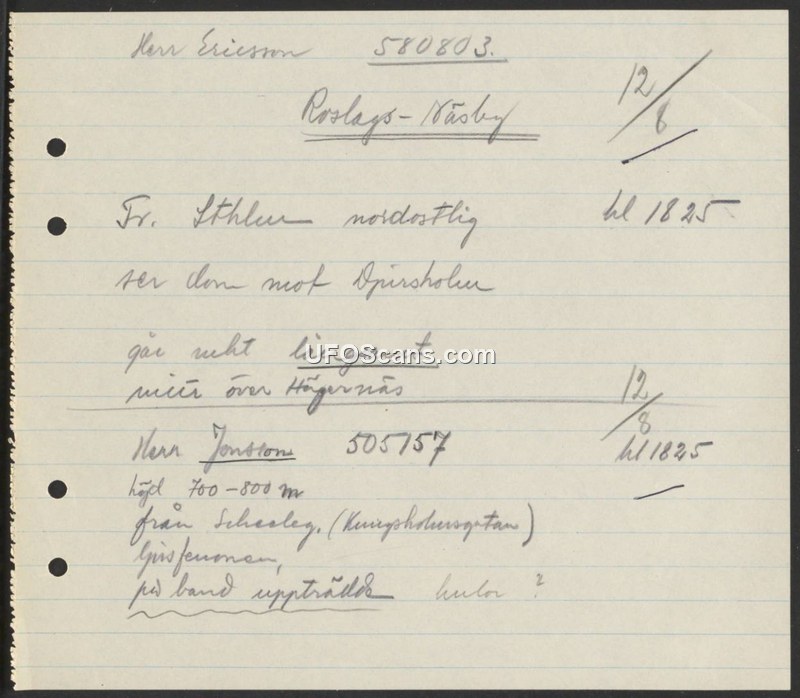 Herr Ericsson 580803.
12/8
Roslags-Näsby
Fr. Sthlm nordostlig kl 1825
ser dom mot Djursholm
går sakta
UFOScans.com
över Hägernäs
12/8
Herr Jonsson 505157 kl 1825
höjd 700-800 m
från Scheeleg. (Kungsholmsgatan)
ljusfenomen,
på band uppträdde kulor ?